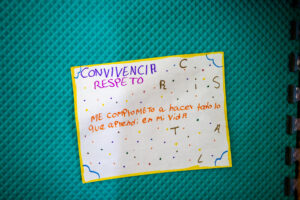 CONVIVENCIA
RESPETO
C
R I S
T A
L
ME COMPROMETO a hacer todo lo
que aprendi en mi vida